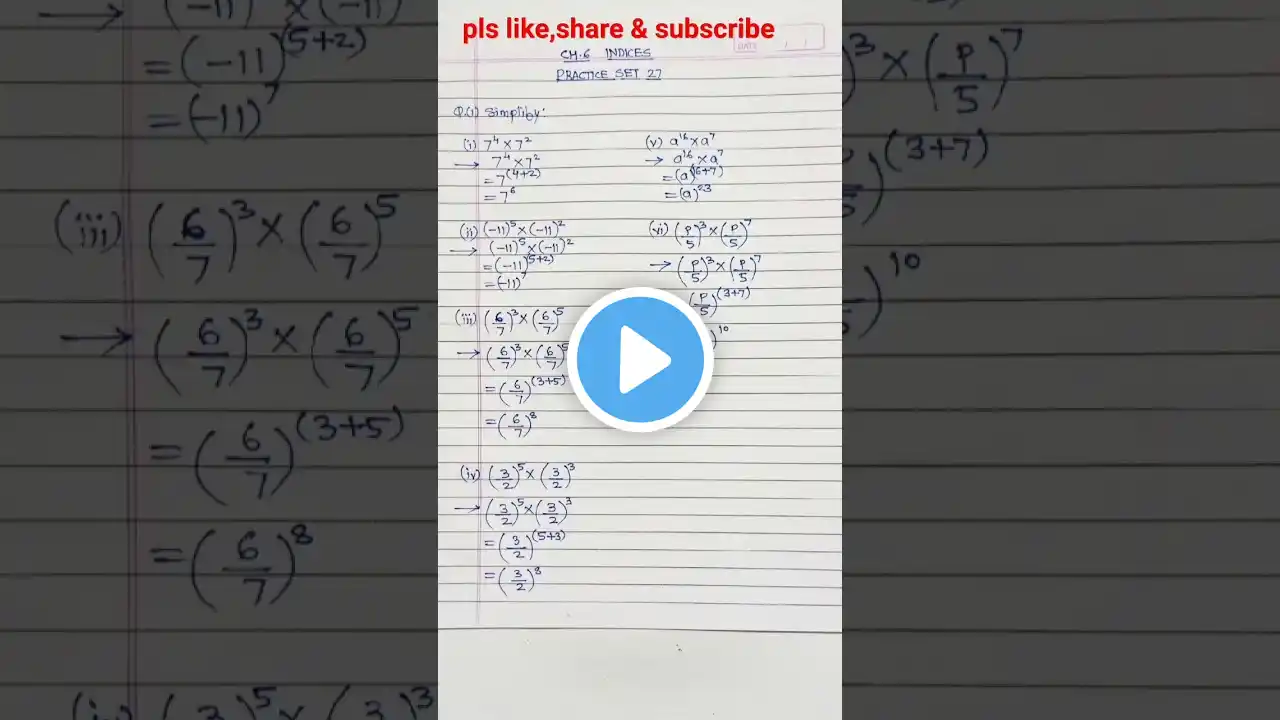 pls like,share & subscribe
DATE / /
CH.6 INDICES
PRACTICE SET 27
Q.(1) Simplify:
(i) 7⁴ × 7²
→ 7⁴ × 7²
= 7⁽⁴⁺²⁾
= 7⁶
(ii) (-11)⁵ × (-11)²
→ (-11)⁵ × (-11)²
= (-11)⁽⁵⁺²⁾
= (-11)⁷
(iii) (6/7)³ × (6/7)⁵
→ (6/7)³ × (6/7)⁵
= (6/7)⁽³⁺⁵⁾
= (6/7)⁸
(iv) (3/2)⁵ × (3/2)³
→ (3/2)⁵ × (3/2)³
= (3/2)⁽⁵⁺³⁾
= (3/2)⁸
(v) a¹⁶ × a⁷
→ a¹⁶ × a⁷
= (a)⁽¹⁶⁺⁷⁾
= (a)²³
(vi) (P/5)³ × (P/5)⁷
→ (P/5)³ × (P/5)⁷
(P/5)⁽³⁺⁷⁾
)¹⁰